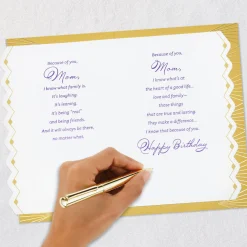 Because of you,
Mom,
I know what family is.
It's laughing.
It's listening.
It's being "real"
and being friends.
And it will always be there,
no matter what.
Because of you,
Mom,
I know what's at
the heart of a good life...
love and family—
those things
that are true and lasting.
They make a difference...
I know that because of you.
Happy Birthday